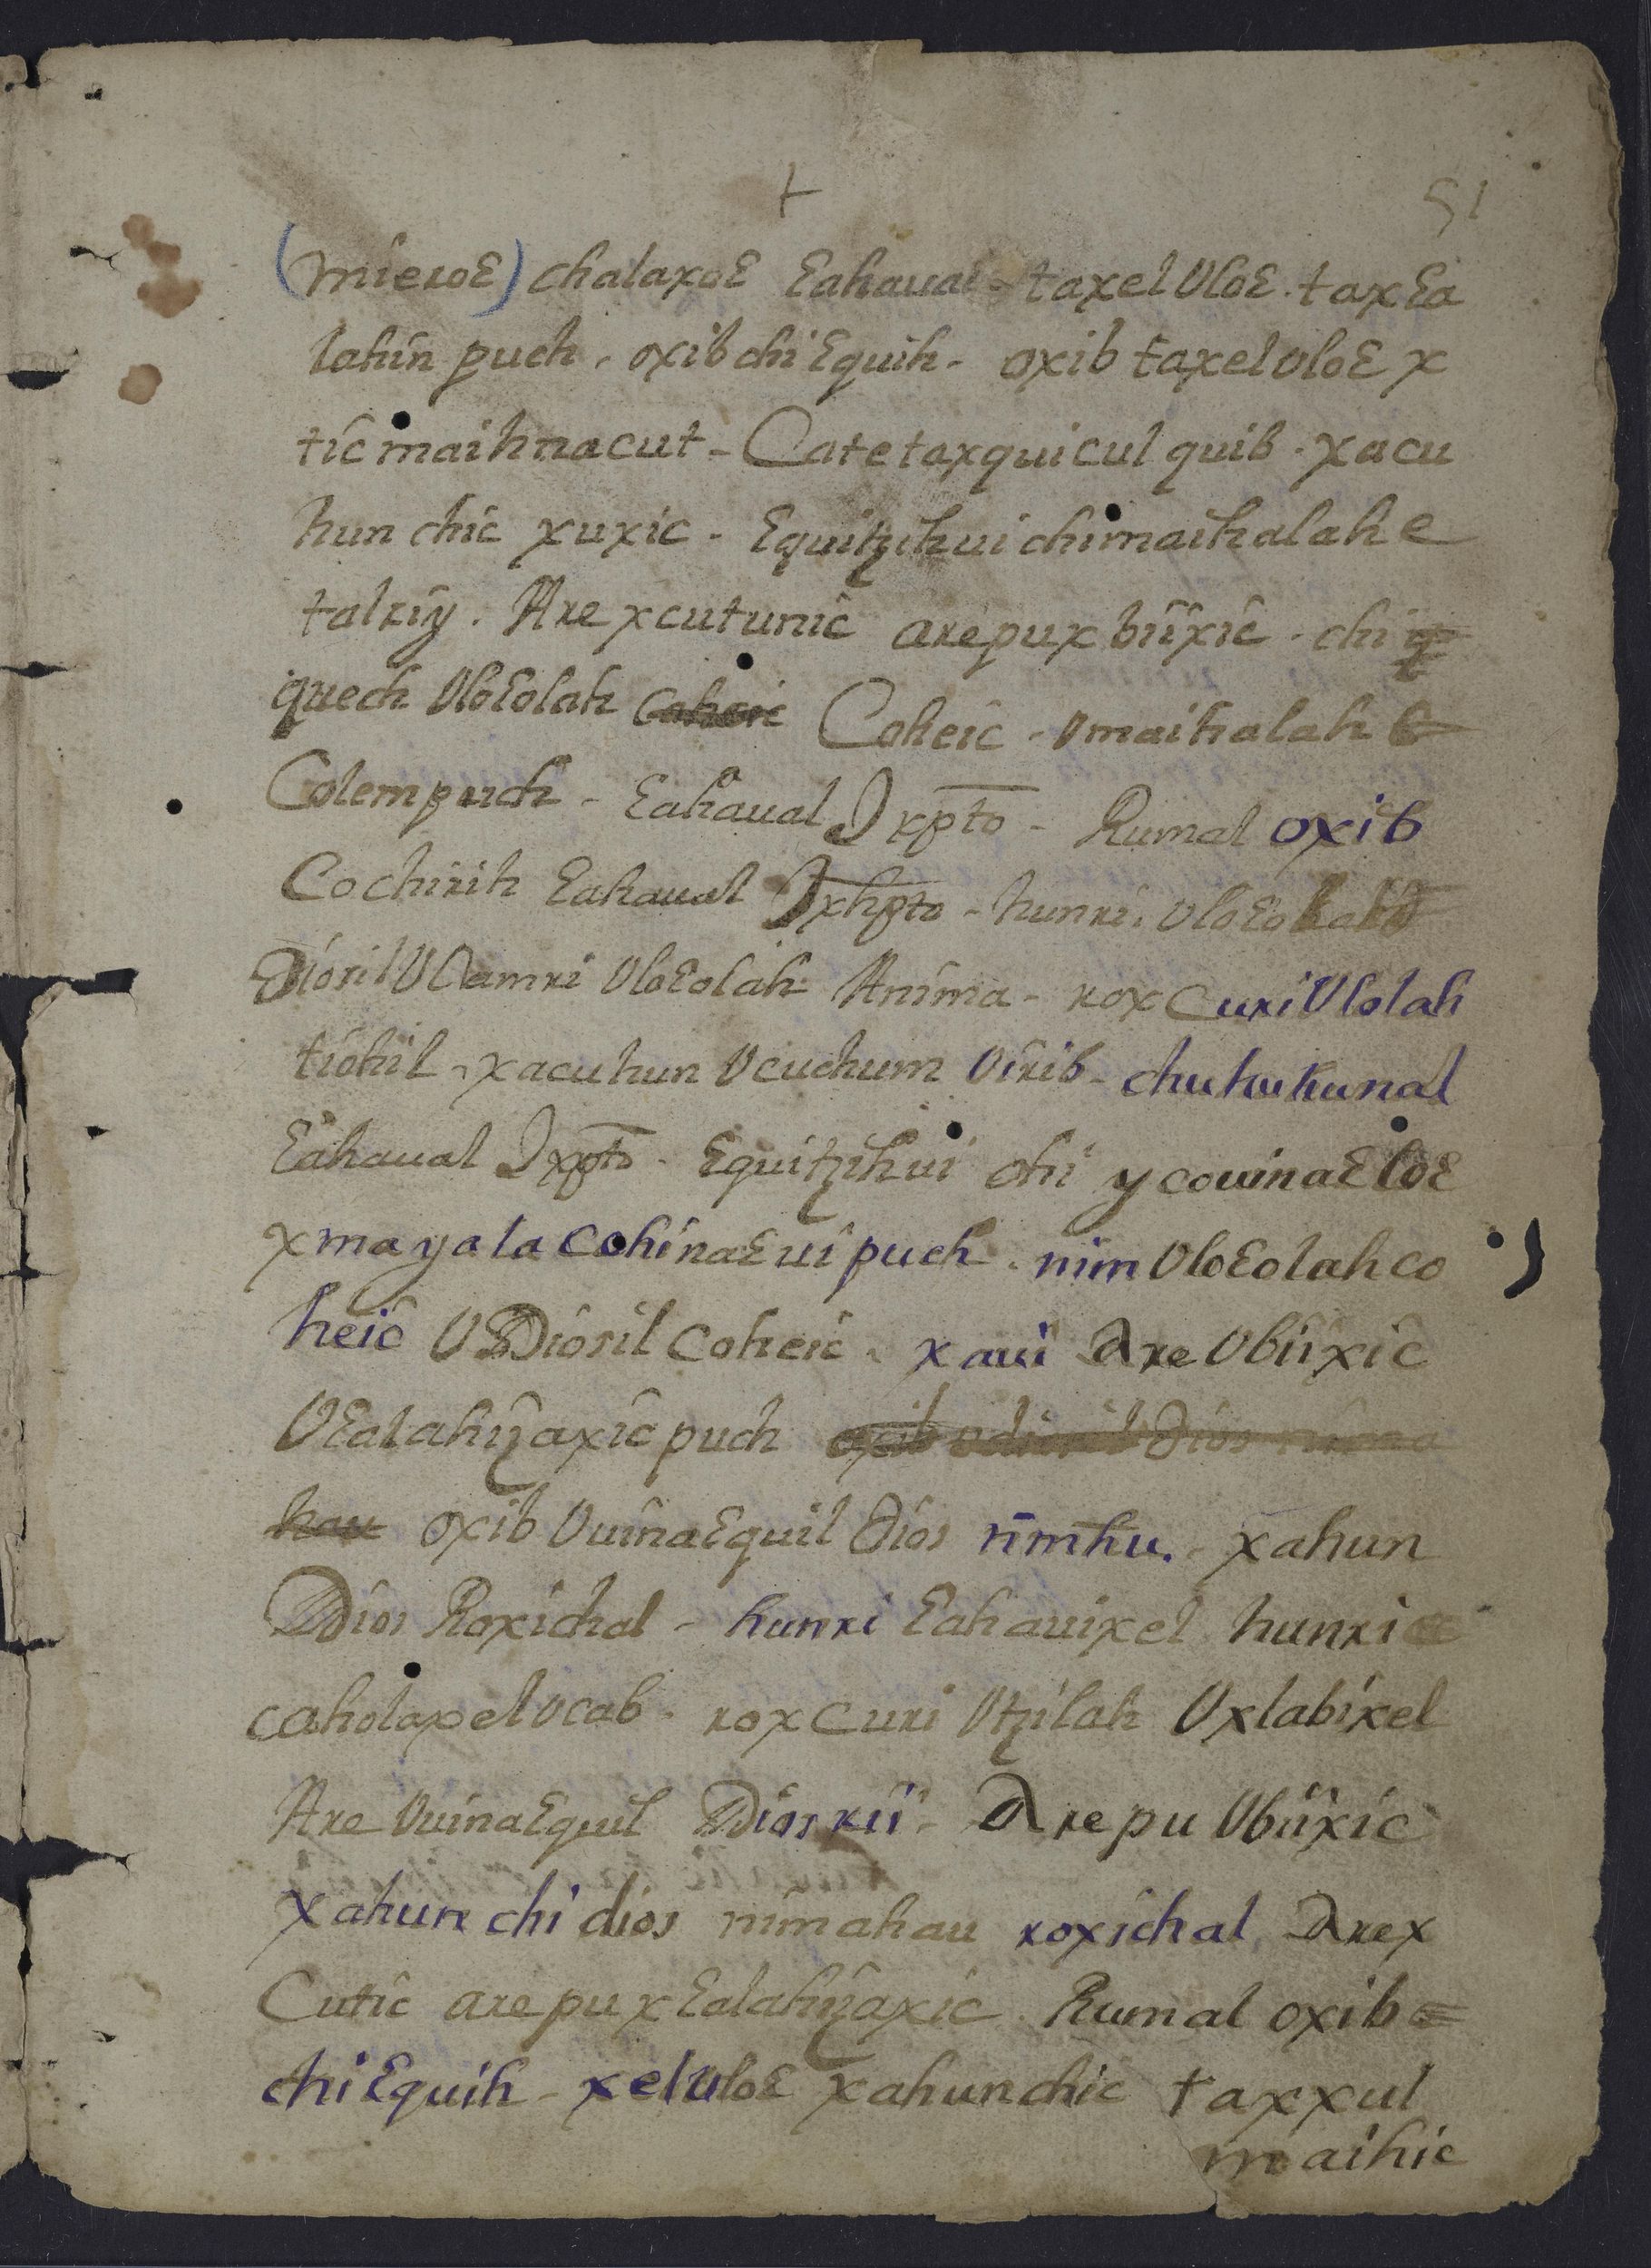 +
51
(mieroɛ) chalaxoɛ ɛahaual - taxel Vloɛ. taxɛa
lahin puch. oxib chi ɛquih - oxib taxel vloɛ x
tic maihnacut - Catetaxquicul quib. xacu
hun chic xuxic - ɛquitzih ui chi maihalah e
talriy. Are xcutunic arepuxbiixic. chi q
quech Vloɛolah Coheic Coheic - Vmaihalah
Colem puch - ɛahaual Jxpto - Rumal oxib
Cochirih ɛahaual Jxhpto - hunri. vloɛo
Diosil VCamri Vloɛolah Anima - rox Curi Vlolah
tiohil - xacuhun Vcuchum Virib - chuhukunal
ɛahaual Jxpto - ɛquitzih ui chi ycouinaɛ loɛ
xmayala Cohinaɛ ui puch. nim Vloɛolah co
heic V Diosil Coheic. xaui Are Vbiixic
Vɛalahizaxic puch oxib vdiosil Dios nima
hau oxib Vuinaɛquil Dios nimhu. - xahun
Dios Roxichal - hunri ɛahauixel hunri
caholaxel ucab. rox Curi Vtzilah Vxlabixel
Are Vuinaɛquil Dios rii - Are pu Vbiixic
xahun chi dios nimahau roxichal Arex
Cutic are pu xɛalahizaxic. Rumal oxib =
chi ɛquih - xel uloɛ xahunchic taxxul
maihic